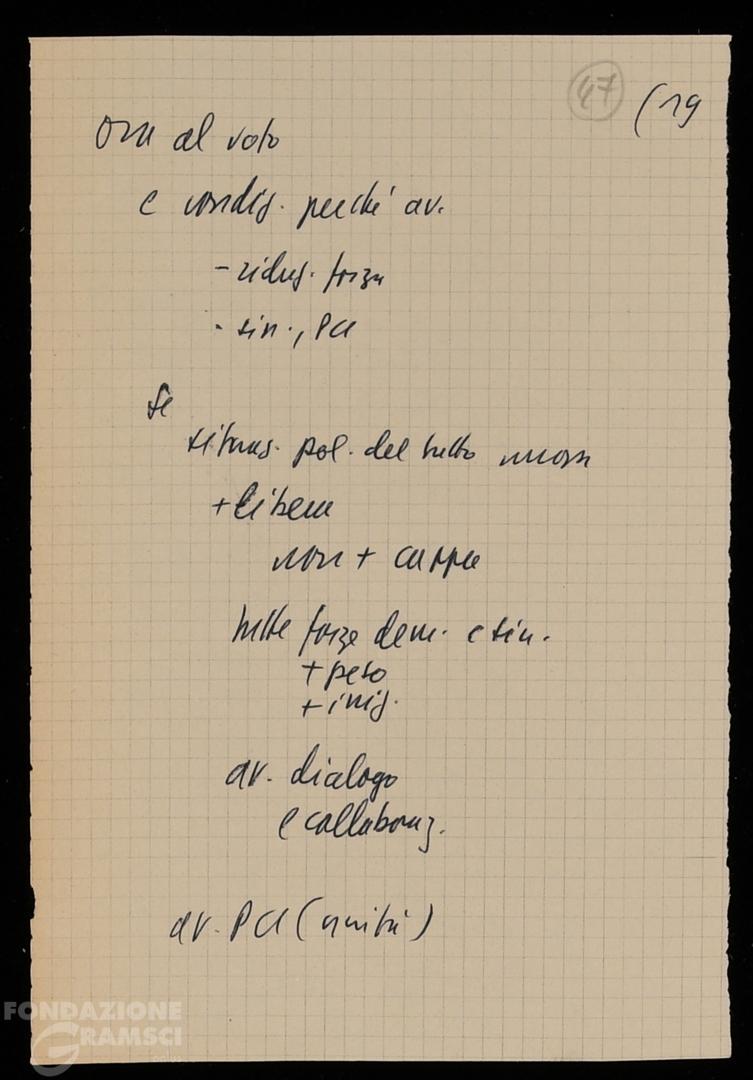 47
(19
Ora al voto
e condiz. perché av.
- riduz. forza
- sin., PCI
Se
situaz. pol. del tutto nuova
+ libera
non + cappa
tutte forze dem. e sin.
+ peso
+ iniz.
av. dialogo
e collaboraz.
av. PCI (unità)
FONDAZIONE
GRAMSCI